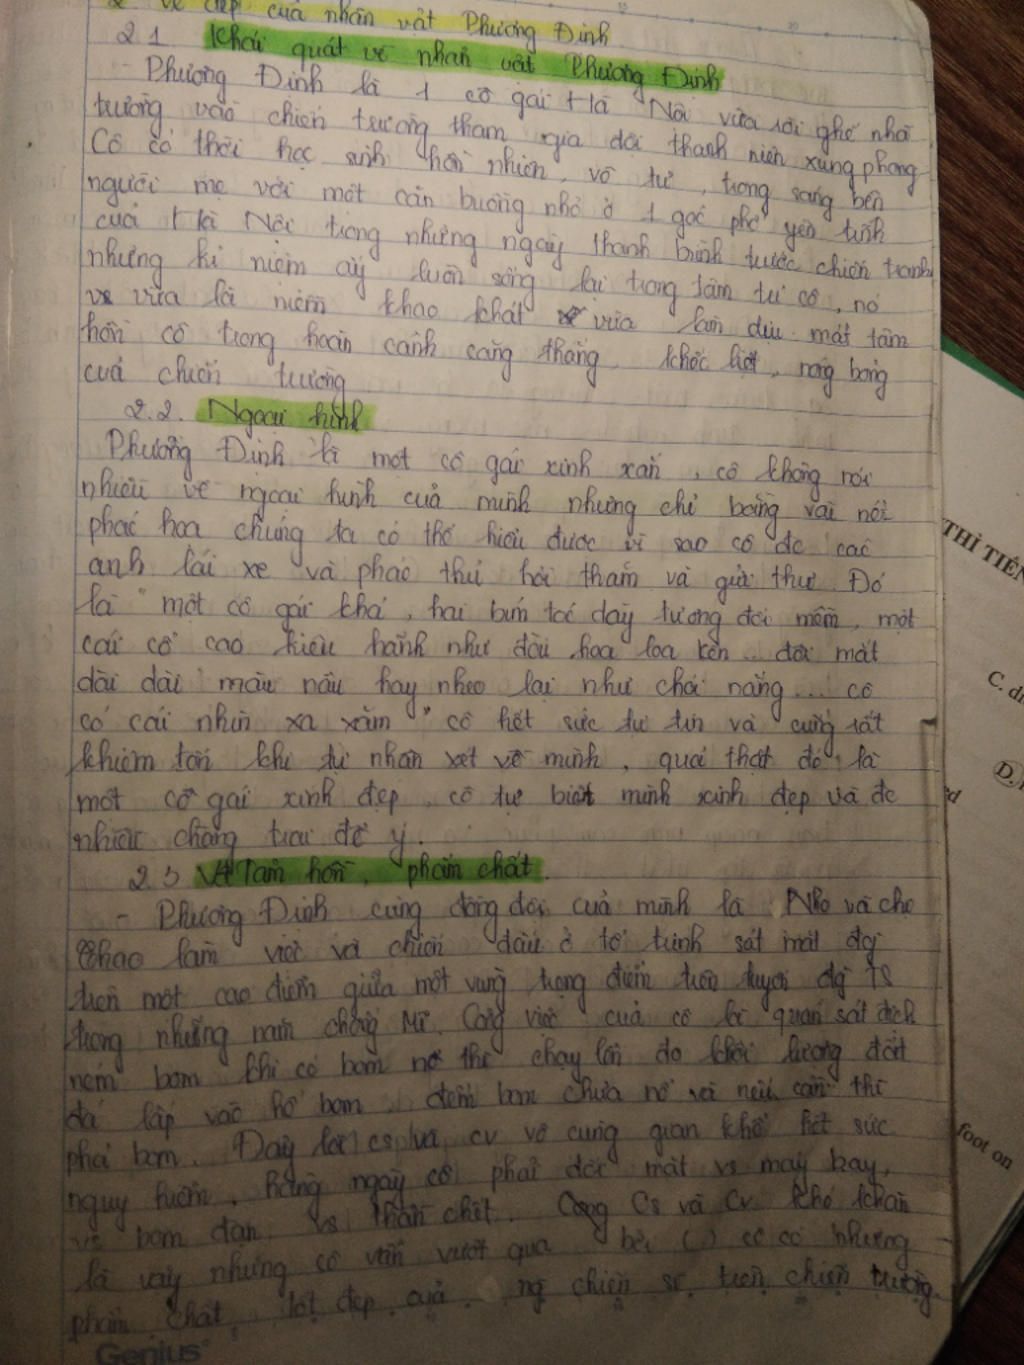 2. Vẻ đẹp của nhân vật Phương Định
2.1 Khái quát về nhân vật Phương Định
- Phương Định là 1 cô gái Hà Nội vừa rời ghế nhà
trường vào chiến trường tham gia đội thanh niên xung phong
Cô có thời học sinh hồn nhiên, vô tư, trong sáng bên
người mẹ với một căn buồng nhỏ ở 1 góc phố yên tĩnh
của Hà Nội trong những ngày thanh bình trước chiến tranh
những kỉ niệm ấy luôn sống lại trong tâm tư cô, nó
vừa là niềm khao khát vừa làm dịu mát tâm
hồn cô trong hoàn cảnh căng thẳng, khốc liệt, nóng bỏng
của chiến trường
2.2. Ngoại hình
Phương Định là một cô gái xinh xắn, cô không nói
nhiều về ngoại hình của mình nhưng chỉ bằng vài nét
phác hoạ chúng ta có thể hiểu được vì sao cô đc các
anh lái xe và pháo thủ hỏi thăm và gửi thư. Đó
là "một cô gái khá, hai bím tóc dày tương đối mềm, một
cái cổ cao kiêu hãnh như đài hoa loa kèn... đôi mắt
dài dài màu nâu hay nheo lại như chói nắng... cô
có cái nhìn xa xăm" cô hết sức tự tin và cũng rất
khiêm tốn khi tự nhận xét về mình, quả thật đó là
một cô gái xinh đẹp, cô tự biết mình xinh đẹp và đc
nhiều chàng trai để ý.
2.3 Tâm hồn, phẩm chất.
- Phương Định cùng đồng đội của mình là Nho và chị
Thao làm việc và chiến đấu ở tổ trinh sát mặt đg
trên một cao điểm giữa một vùng trọng điểm trên tuyến đg TS
trong những năm chống Mĩ. Công việc của cô là quan sát địch
ném bom khi có bom nổ thì chạy lên đo khối lượng đất
đá lấp vào hố bom, đếm bom chưa nổ và nếu cần thì
phá bom. Đây là cs và cv vô cùng gian khổ hết sức
nguy hiểm, hằng ngày cô phải đối mặt vs máy bay,
vs bom đạn, vs thần chết. Công Cs và Cv khó khăn
là vậy nhưng cô vẫn vượt qua bởi (.) cô có những
phẩm chất tốt đẹp của ng chiến sĩ trên chiến trường.
Genius
THỊ TIẾN
C.
D.
foot on